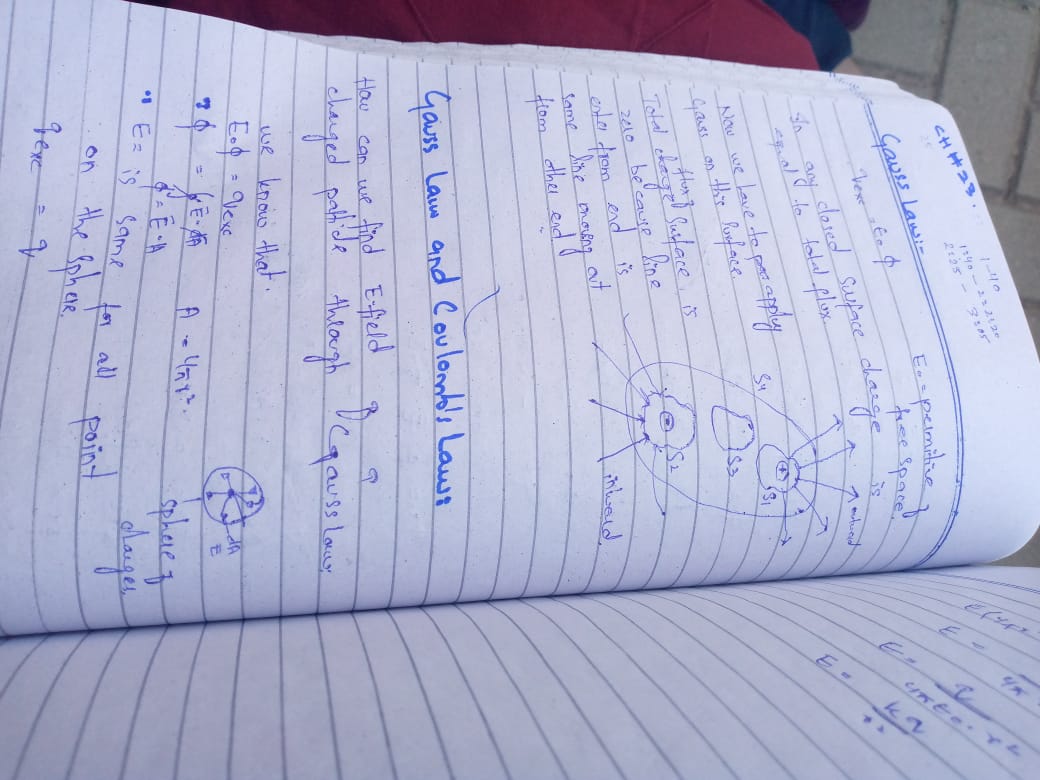 CH#23:
1-110
Gauss Law:-
qexc = ε₀ ϕ
E₀ = permitive of
free space
In any closed surface charge is
equal to total flux
Now we have to apply
Gauss on this surface.
Total charge surface is
zero because line
enter from end is
same line moving out
from other end
outward
S1
S4
S3
S2
inward
Gauss Law and Coulomb's Law:
How can we find E-field of a
charged patide through (gauss Law:
we know that.
E₀ϕ = qexc
ϕ = ∮E·dA A = 4πr².
ϕ = E·A
dA
E
sphere of
charges
" E = is same for all point
on the sphere.
qexc = q
E =
4π
E = q
4πε₀·r²
E = kq
r²